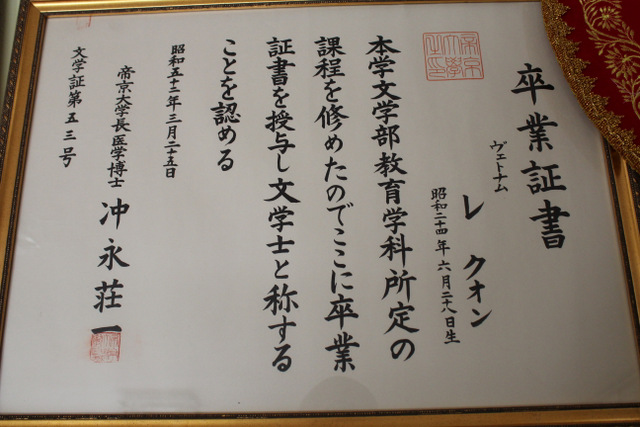 卒業証書
ヴェトナム
レ クォン
昭和二十四年六月二十八日生
本学文学部教育学科所定の
課程を修めたのでここに卒業
証書を授与し文学士と称する
ことを認める
昭和五十二年三月二十五日
帝京大学長医学博士 冲永荘一
文学証第五三号